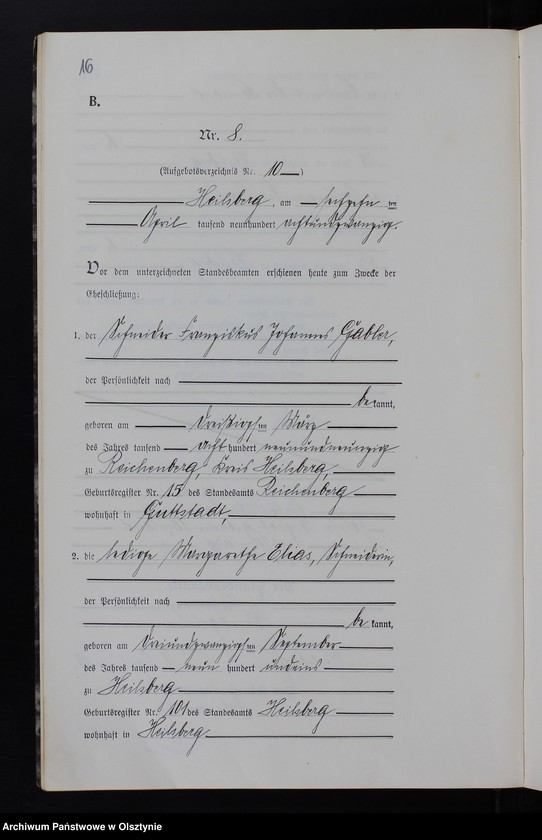 16
B.
Nr. 8.
(Aufgebotsverzeichnis Nr. 10)
Heilsberg, am sechzehnten
April tausend neunhundert achtundzwanzig.
Vor dem unterzeichneten Standesbeamten erschienen heute zum Zwecke der
Eheschließung:
1. der Schneider Franziskus Johannes Gabler,
der Persönlichkeit nach
bekannt,
geboren am dreißigsten März
des Jahres tausend acht hundert neunundneunzig
zu Reichenberg, Kreis Heilsberg,
Geburtsregister Nr. 15 des Standesamts Reichenberg
wohnhaft in Guttstadt,
2. die ledige Margarethe Elias, Schneiderin,
der Persönlichkeit nach
bekannt,
geboren am dreiundzwanzigsten September
des Jahres tausend neun hundert undeins
zu Heilsberg
Geburtsregister Nr. 101 des Standesamts Heilsberg
wohnhaft in Heilsberg
Archiwum Państwowe w Olsztynie